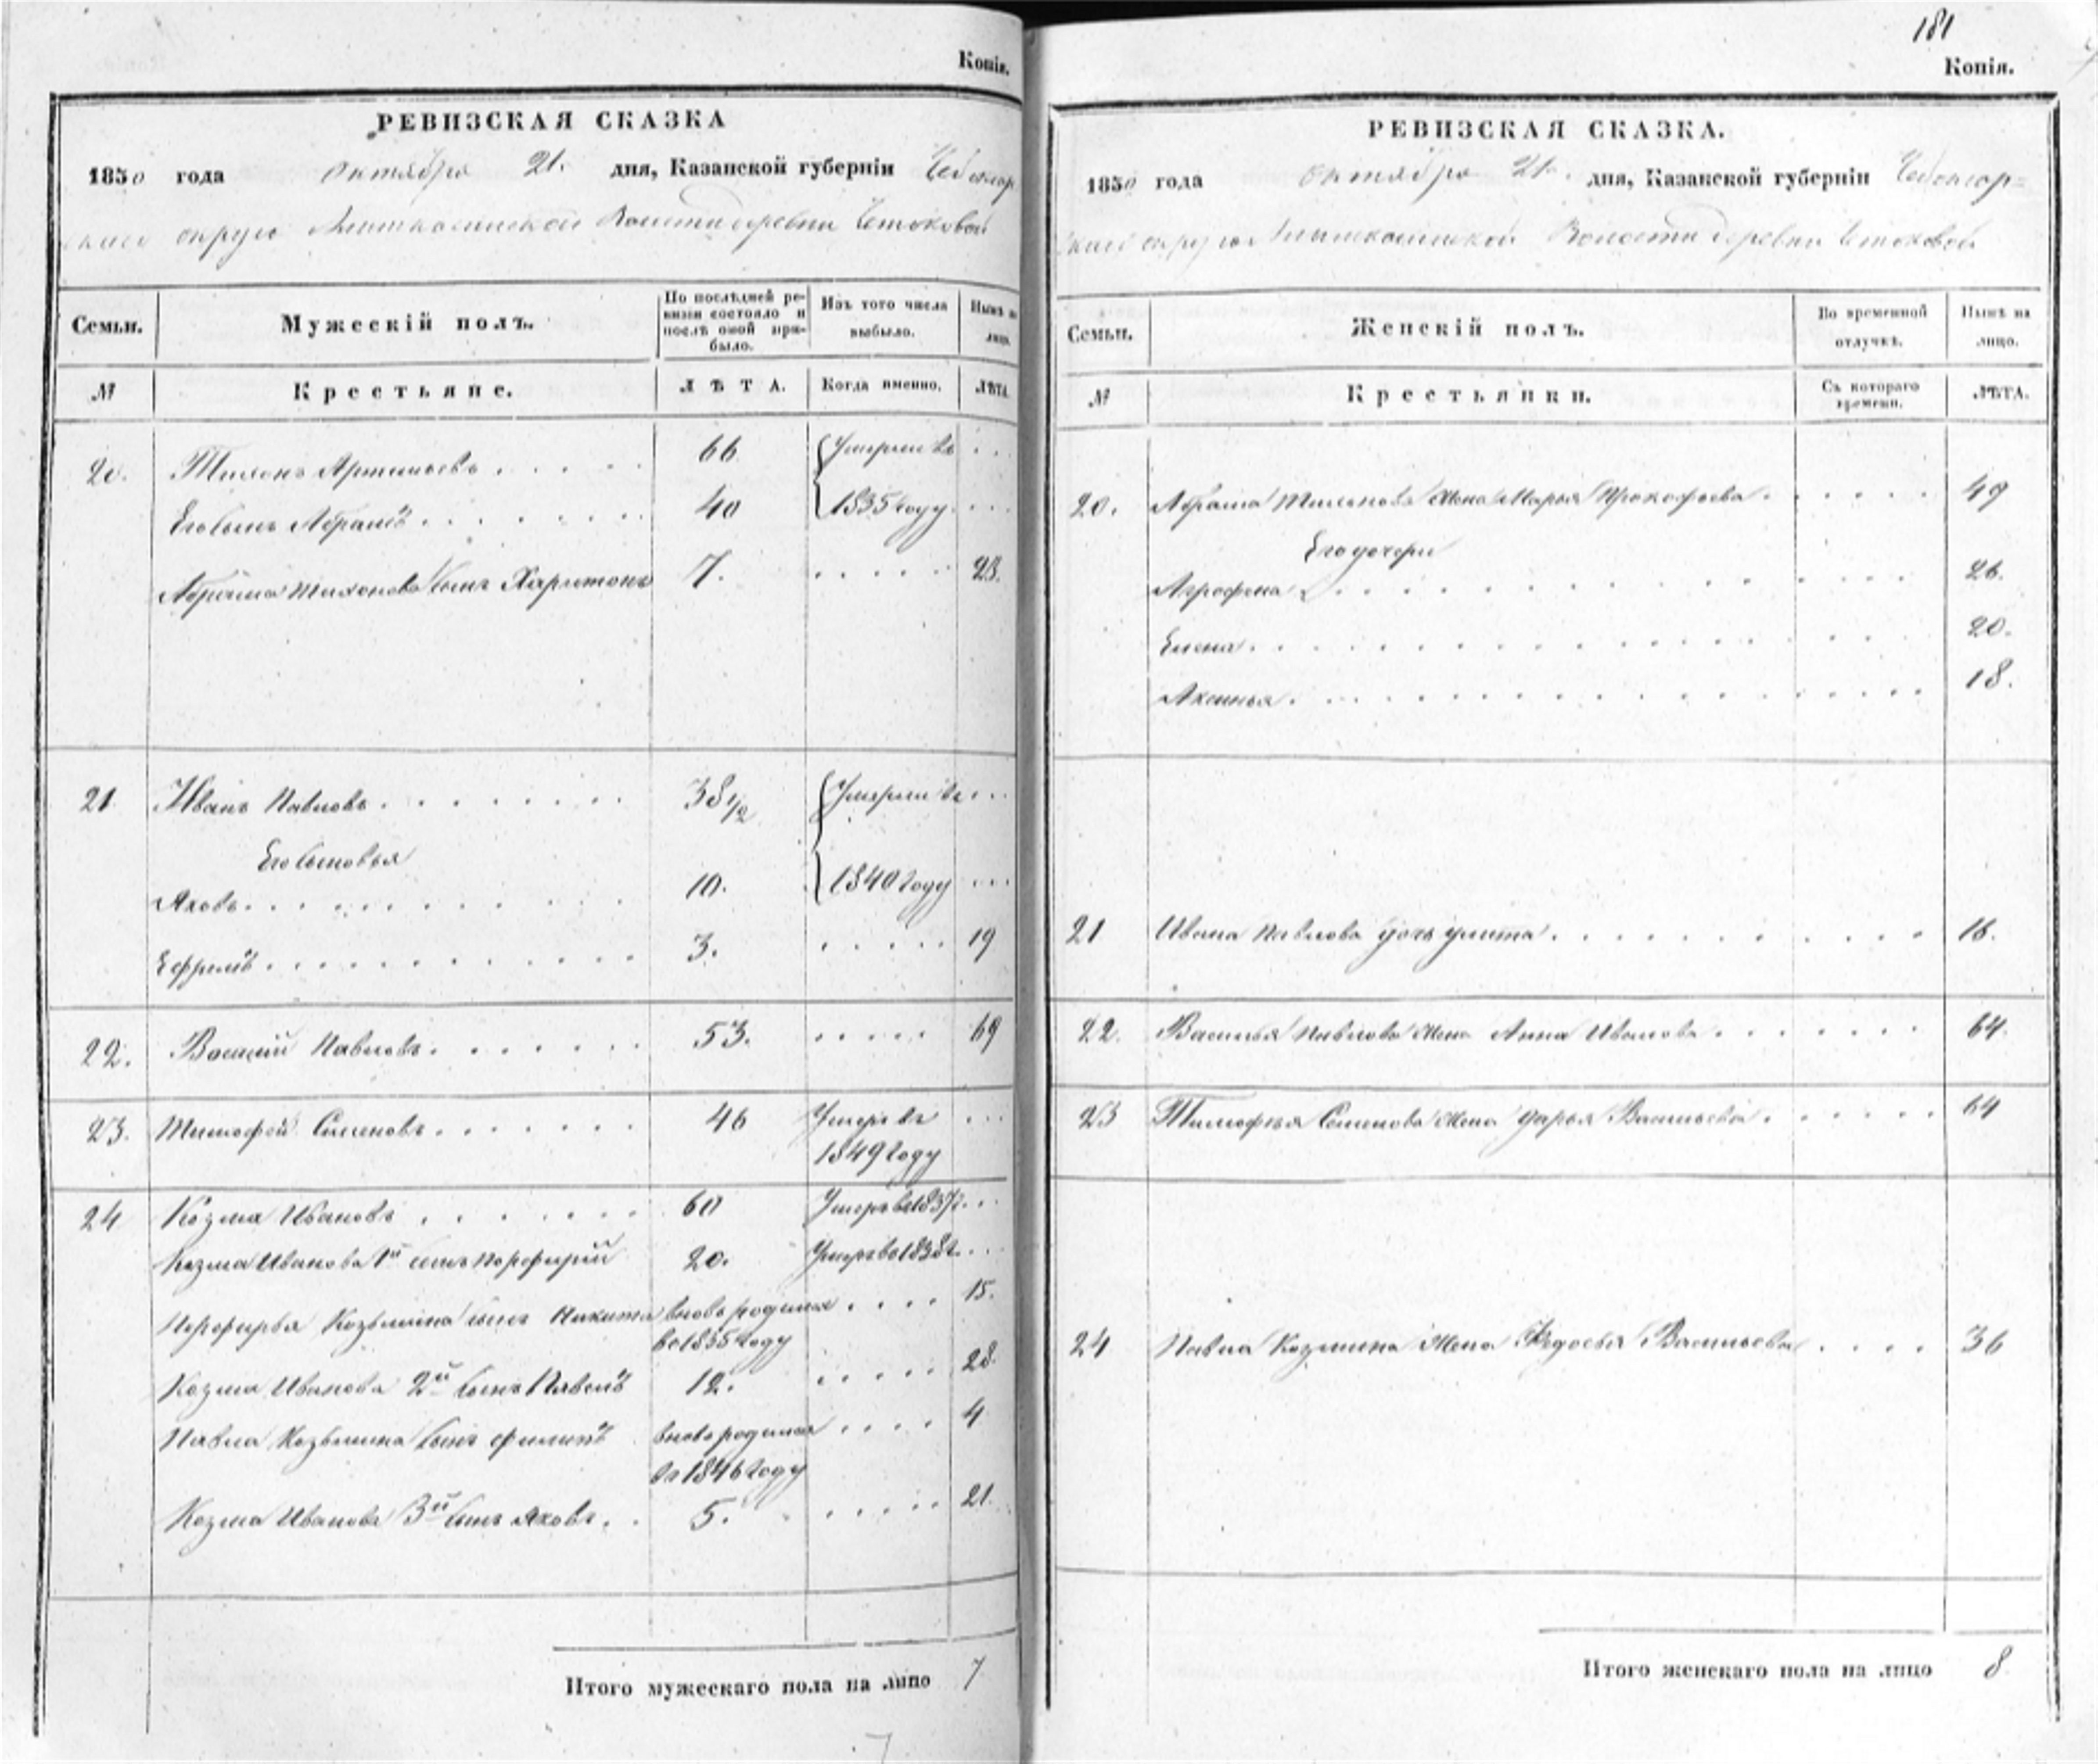 Копія.
РЕВИЗСКАЯ СКАЗКА
1850 года октября 21. дня, Казанской губерніи Чебоксар
скаго округа Волости деревни
Семьи.
Мужескій полъ.
По послѣдней ре-
визіи состояло и
послѣ оной при-
было.
Изъ того числа
выбыло.
Нынѣ на
лицо.
№
Крестьяне.
ЛѢТА.
Когда именно.
ЛѢТА.
20. Тихонъ Артемьевъ . . . . . 66 Умерли въ . . .
Его сынъ Абрамъ . . . . . . 40 1835 году . . .
Абрама Тихонова сынъ Харитонъ 7. . . . . . 23.
21 Иванъ Павловъ . . . . . . . 38 1/2 Умерли въ . . .
Его сыновья
Яковъ . . . . . . . . . . 10. 1840 году . . .
Ефремъ . . . . . . . . . . . 3. . . . . . 19
22. Василій Павловъ . . . . . . 53. . . . . . 69
23. Тимофей Семеновъ . . . . . . . 46 Умеръ въ . . .
1849 году
24 Козма Ивановъ . . . . . . . 60 Умеръ въ 1837 г. . .
Козма Иванова 1й сынъ Порфирій 20. Умеръ въ 1838 г. . .
Порфирья Козьмина сынъ Никита вновь родился . . . . 15.
въ 1835 году
Козма Иванова 2й сынъ Павелъ 12. . . . . . 28.
Павла Козьмина сынъ Филипъ вновь родился . . . . 4
въ 1846 году
Козма Иванова 3й сынъ Яковъ . . 5. . . . . . 21.
Итого мужескаго пола на лицо 7
181
Копія.
РЕВИЗСКАЯ СКАЗКА.
1850 года октября 21. дня, Казанской губерніи Чебоксар=
скаго округа Волости деревни
Семьи.
Женскій полъ.
Во временной
отлучкѣ.
Нынѣ на
лицо.
№
Крестьянки.
Съ котораго
времени.
ЛѢТА.
20. Абрама Тихонова жена Марья Прокофьева . . . . . . 49
Его дочери
Агрофена . . . . . . . . . . . . 26.
Елена . . . . . . . . . . . . 20.
Аксинья . . . . . . . . . . . . 18.
21 Ивана Павлова дочь Улита . . . . . . . . . . 16.
22. Василья Павлова жена Анна Иванова . . . . . . . 64.
23 Тимофея Семенова жена Дарья Васильева . . . . . . 64
24 Павла Козмина жена Федосья Васильева . . . . 36
Итого женскаго пола на лицо 8